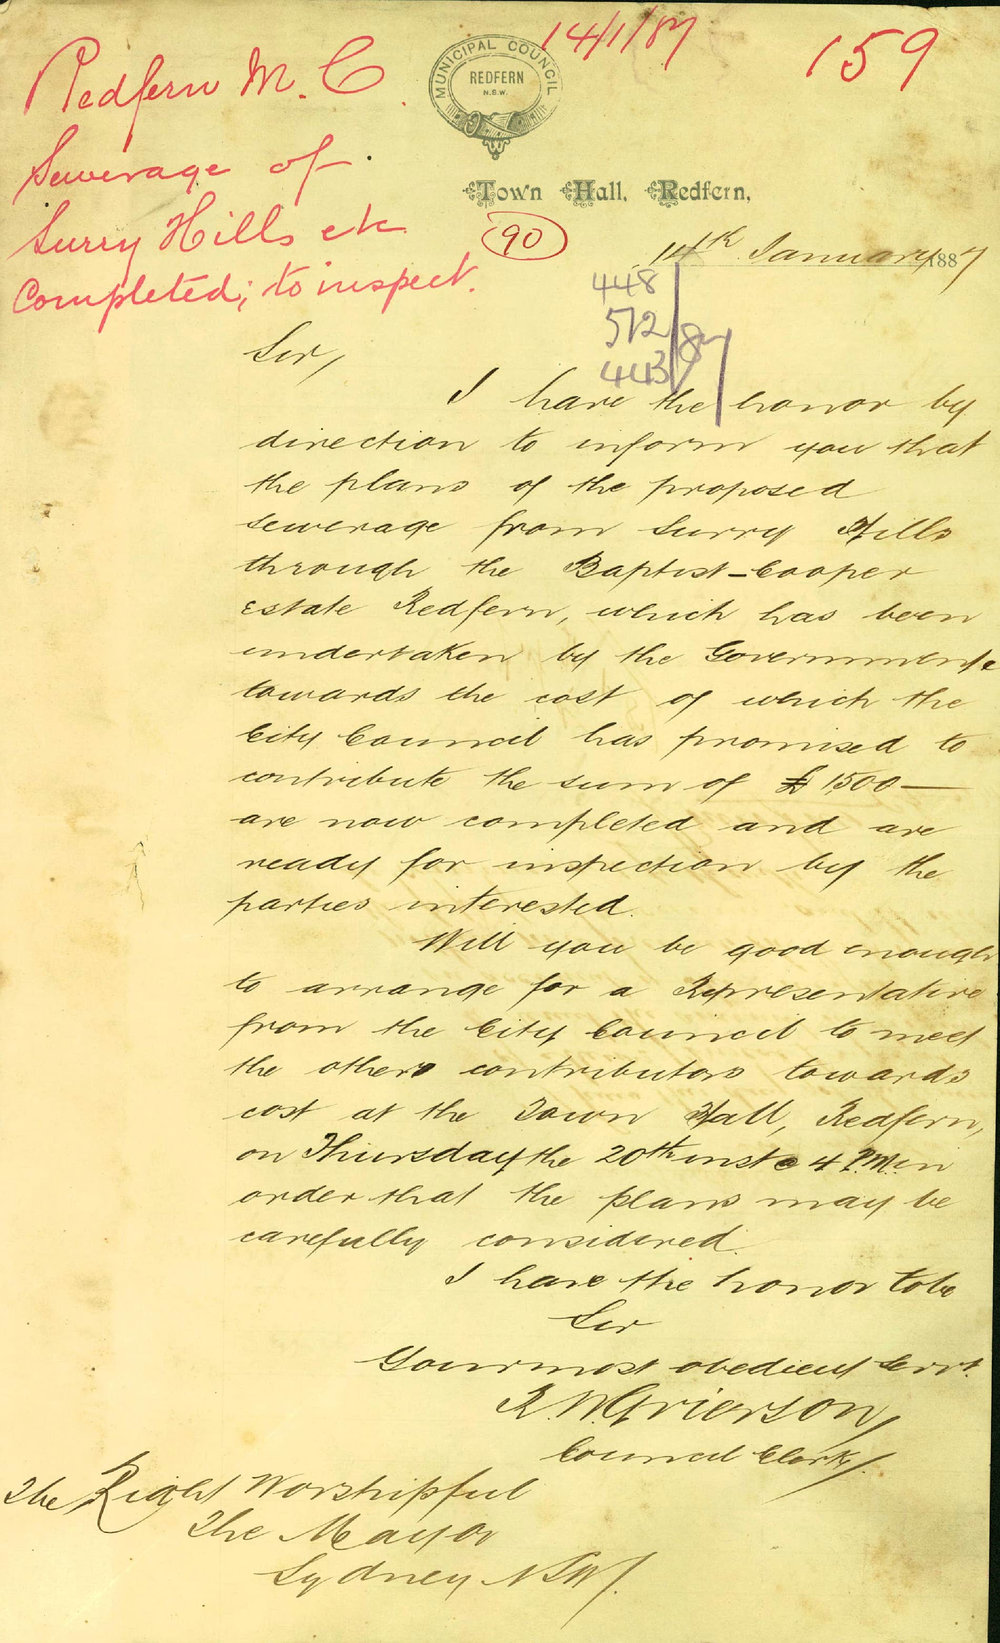 14/1/87
159
Redfern M. C.
Sewerage of
Surry Hills etc
Completed; to inspect.
MUNICIPAL COUNCIL
REDFERN
N.S.W.
Town Hall, Redfern,
90
14th January 1887
448
512
443
/87
Sir,
I have the honor by
direction to inform you that
the plans of the proposed
sewerage from Surry Hills
through the Baptist-Cooper
Estate Redfern, which has been
undertaken by the Government
towards the cost of which the
City Council has promised to
contribute the sum of £1,500—
are now completed and are
ready for inspection by the
parties interested.
Will you be good enough
to arrange for a Representative
from the City Council to meet
the others contributors towards
cost at the Town Hall, Redfern,
on Thursday the 20th inst @ 4 P.M. in
order that the plans may be
carefully considered.
I have the honor to be
Sir
Your most obedient Servt.
R. W. Grierson
Council Clerk
The Right Worshipful
The Mayor
Sydney NSW